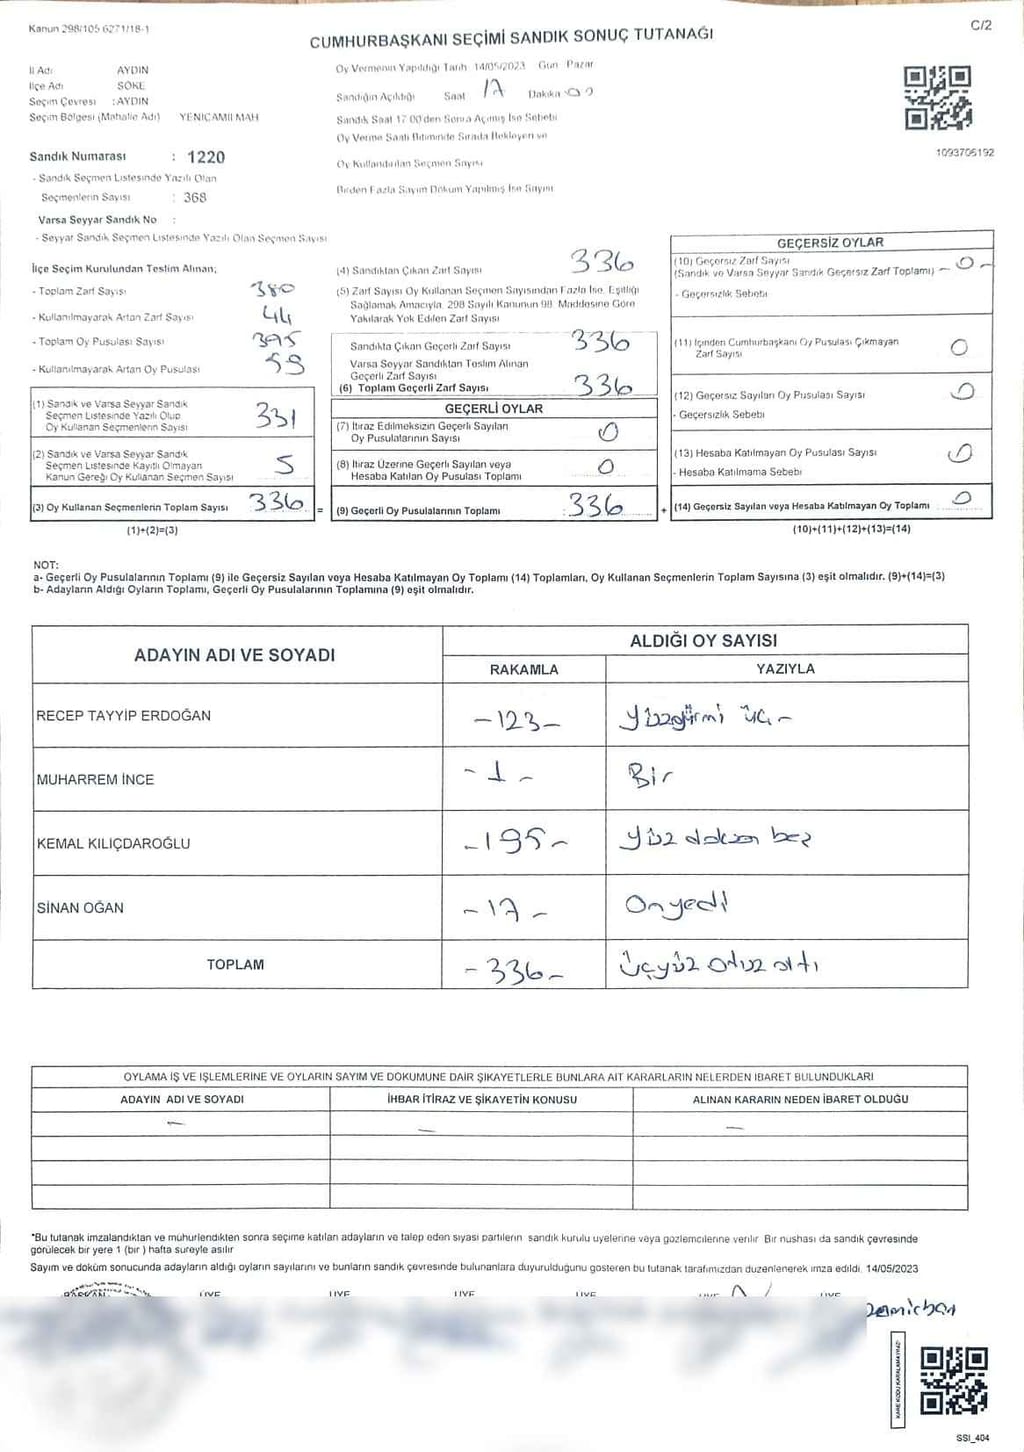 Kanun 298/105 6271/18-1
C/2
CUMHURBAŞKANI SEÇİMİ SANDIK SONUÇ TUTANAĞI
İl Adı AYDIN
İlçe Adı SÖKE
Seçim Çevresi : AYDIN
Seçim Bölgesi (Mahalle Adı) YENİCAMİİ MAH
Sandık Numarası : 1220
- Sandık Seçmen Listesinde Yazılı Olan
Seçmenlerin Sayısı : 368
Varsa Seyyar Sandık No :
- Seyyar Sandık Seçmen Listesinde Yazılı Olan Seçmen Sayısı
Oy Vermenin Yapıldığı Tarih 14/05/2023 Gün Pazar
Sandığın Açıldığı Saat 17 Dakika 00
Sandık Saat 17 00 den Sonra Açılmış İse Sebebi
Oy Verme Saati Bitiminde Sırada Bekleyen ve
Oy Kullandırılan Seçmen Sayısı
Birden Fazla Sayım Döküm Yapılmış İse Sayısı
1093706192
İlçe Seçim Kurulundan Teslim Alınan;
- Toplam Zarf Sayısı 380
- Kullanılmayarak Artan Zarf Sayısı 44
- Toplam Oy Pusulası Sayısı 395
- Kullanılmayarak Artan Oy Pusulası 59
(1) Sandık ve Varsa Seyyar Sandık
Seçmen Listesinde Yazılı Olup
Oy Kullanan Seçmenlerin Sayısı 331
(2) Sandık ve Varsa Seyyar Sandık
Seçmen Listesinde Kayıtlı Olmayan
Kanun Gereği Oy Kullanan Seçmen Sayısı 5
(3) Oy Kullanan Seçmenlerin Toplam Sayısı 336
(1)+(2)=(3)
=
(4) Sandıktan Çıkan Zarf Sayısı 336
(5) Zarf Sayısı Oy Kullanan Seçmen Sayısından Fazla İse, Eşitliği
Sağlamak Amacıyla, 298 Sayılı Kanunun 98. Maddesine Göre
Yakılarak Yok Edilen Zarf Sayısı
Sandıkta Çıkan Geçerli Zarf Sayısı 336
Varsa Seyyar Sandıktan Teslim Alınan
Geçerli Zarf Sayısı
(6) Toplam Geçerli Zarf Sayısı 336
GEÇERLİ OYLAR
(7) İtiraz Edilmeksizin Geçerli Sayılan
Oy Pusulalarının Sayısı 0
(8) İtiraz Üzerine Geçerli Sayılan veya
Hesaba Katılan Oy Pusulası Toplamı 0
(9) Geçerli Oy Pusulalarının Toplamı : 336
+
GEÇERSİZ OYLAR
(10) Geçersiz Zarf Sayısı
(Sandık ve Varsa Seyyar Sandık Geçersiz Zarf Toplamı) - 0 -
- Geçersizlik Sebebi
(11) İçinden Cumhurbaşkanı Oy Pusulası Çıkmayan
Zarf Sayısı 0
(12) Geçersiz Sayılan Oy Pusulası Sayısı 0
- Geçersizlik Sebebi
(13) Hesaba Katılmayan Oy Pusulası Sayısı 0
- Hesaba Katılmama Sebebi
(14) Geçersiz Sayılan veya Hesaba Katılmayan Oy Toplamı 0
(10)+(11)+(12)+(13)=(14)
NOT:
a- Geçerli Oy Pusulalarının Toplamı (9) ile Geçersiz Sayılan veya Hesaba Katılmayan Oy Toplamı (14) Toplamları, Oy Kullanan Seçmenlerin Toplam Sayısına (3) eşit olmalıdır. (9)+(14)=(3)
b- Adayların Aldığı Oyların Toplamı, Geçerli Oy Pusulalarının Toplamına (9) eşit olmalıdır.
ADAYIN ADI VE SOYADI
ALDIĞI OY SAYISI
RAKAMLA YAZIYLA
RECEP TAYYİP ERDOĞAN -123- Yüzyirmi üç -
MUHARREM İNCE - 1 - Bir
KEMAL KILIÇDAROĞLU -195- Yüz doksan beş
SİNAN OĞAN - 17 - Onyedi
TOPLAM -336- Üçyüz otuz altı
OYLAMA İŞ VE İŞLEMLERİNE VE OYLARIN SAYIM VE DÖKÜMÜNE DAİR ŞİKAYETLERLE BUNLARA AİT KARARLARIN NELERDEN İBARET BULUNDUKLARI
ADAYIN ADI VE SOYADI İHBAR İTİRAZ VE ŞİKAYETİN KONUSU ALINAN KARARIN NEDEN İBARET OLDUĞU
- - -
*Bu tutanak imzalandıktan ve mühürlendikten sonra seçime katılan adayların ve talep eden siyasi partilerin sandık kurulu üyelerine veya gözlemcilerine verilir Bir nüshası da sandık çevresinde
görülecek bir yere 1 (bir ) hafta süreyle asılır
Sayım ve döküm sonucunda adayların aldığı oyların sayılarını ve bunların sandık çevresinde bulunanlara duyurulduğunu gösteren bu tutanak tarafımızdan düzenlenerek imza edildi. 14/05/2023
BAŞKAN ÜYE ÜYE ÜYE ÜYE ÜYE ÜYE
KARE KODU KARALAMAYINIZ!
SSI_404